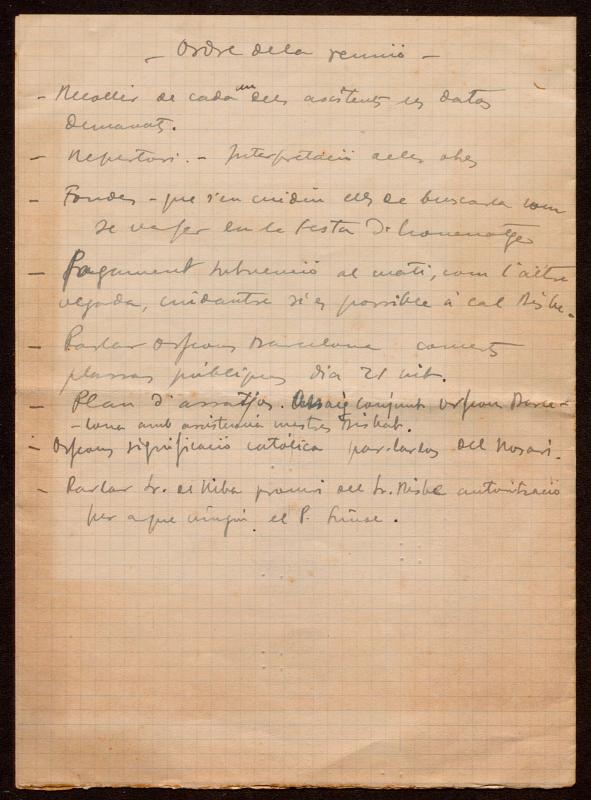 - Ordre de la reunió -
- Recollir de cada un dels assistents les datas
demanats.
- Repertori. - Interpretació de les obres
- Fondes - que s'en cuidin ells de buscarla com
se va fer en la festa d'homenatge
- Pagament subvenció al matí, com l'altre
vegada, cuidantse si es possible à cal Bisbe.
- Parlar Orfeons Barcelona concerts
plassas públiques dia 21 nit.
- Plan d'assatjos. Assaig conjunt orfeons Barce-
- lona amb assistencia mestres Bisbat.
- Orfeons significació católica parlarlos del Rosari.
- Parlar Sr. de Riba permís del Sr. Bisbe autorització
per a que vingui el P.